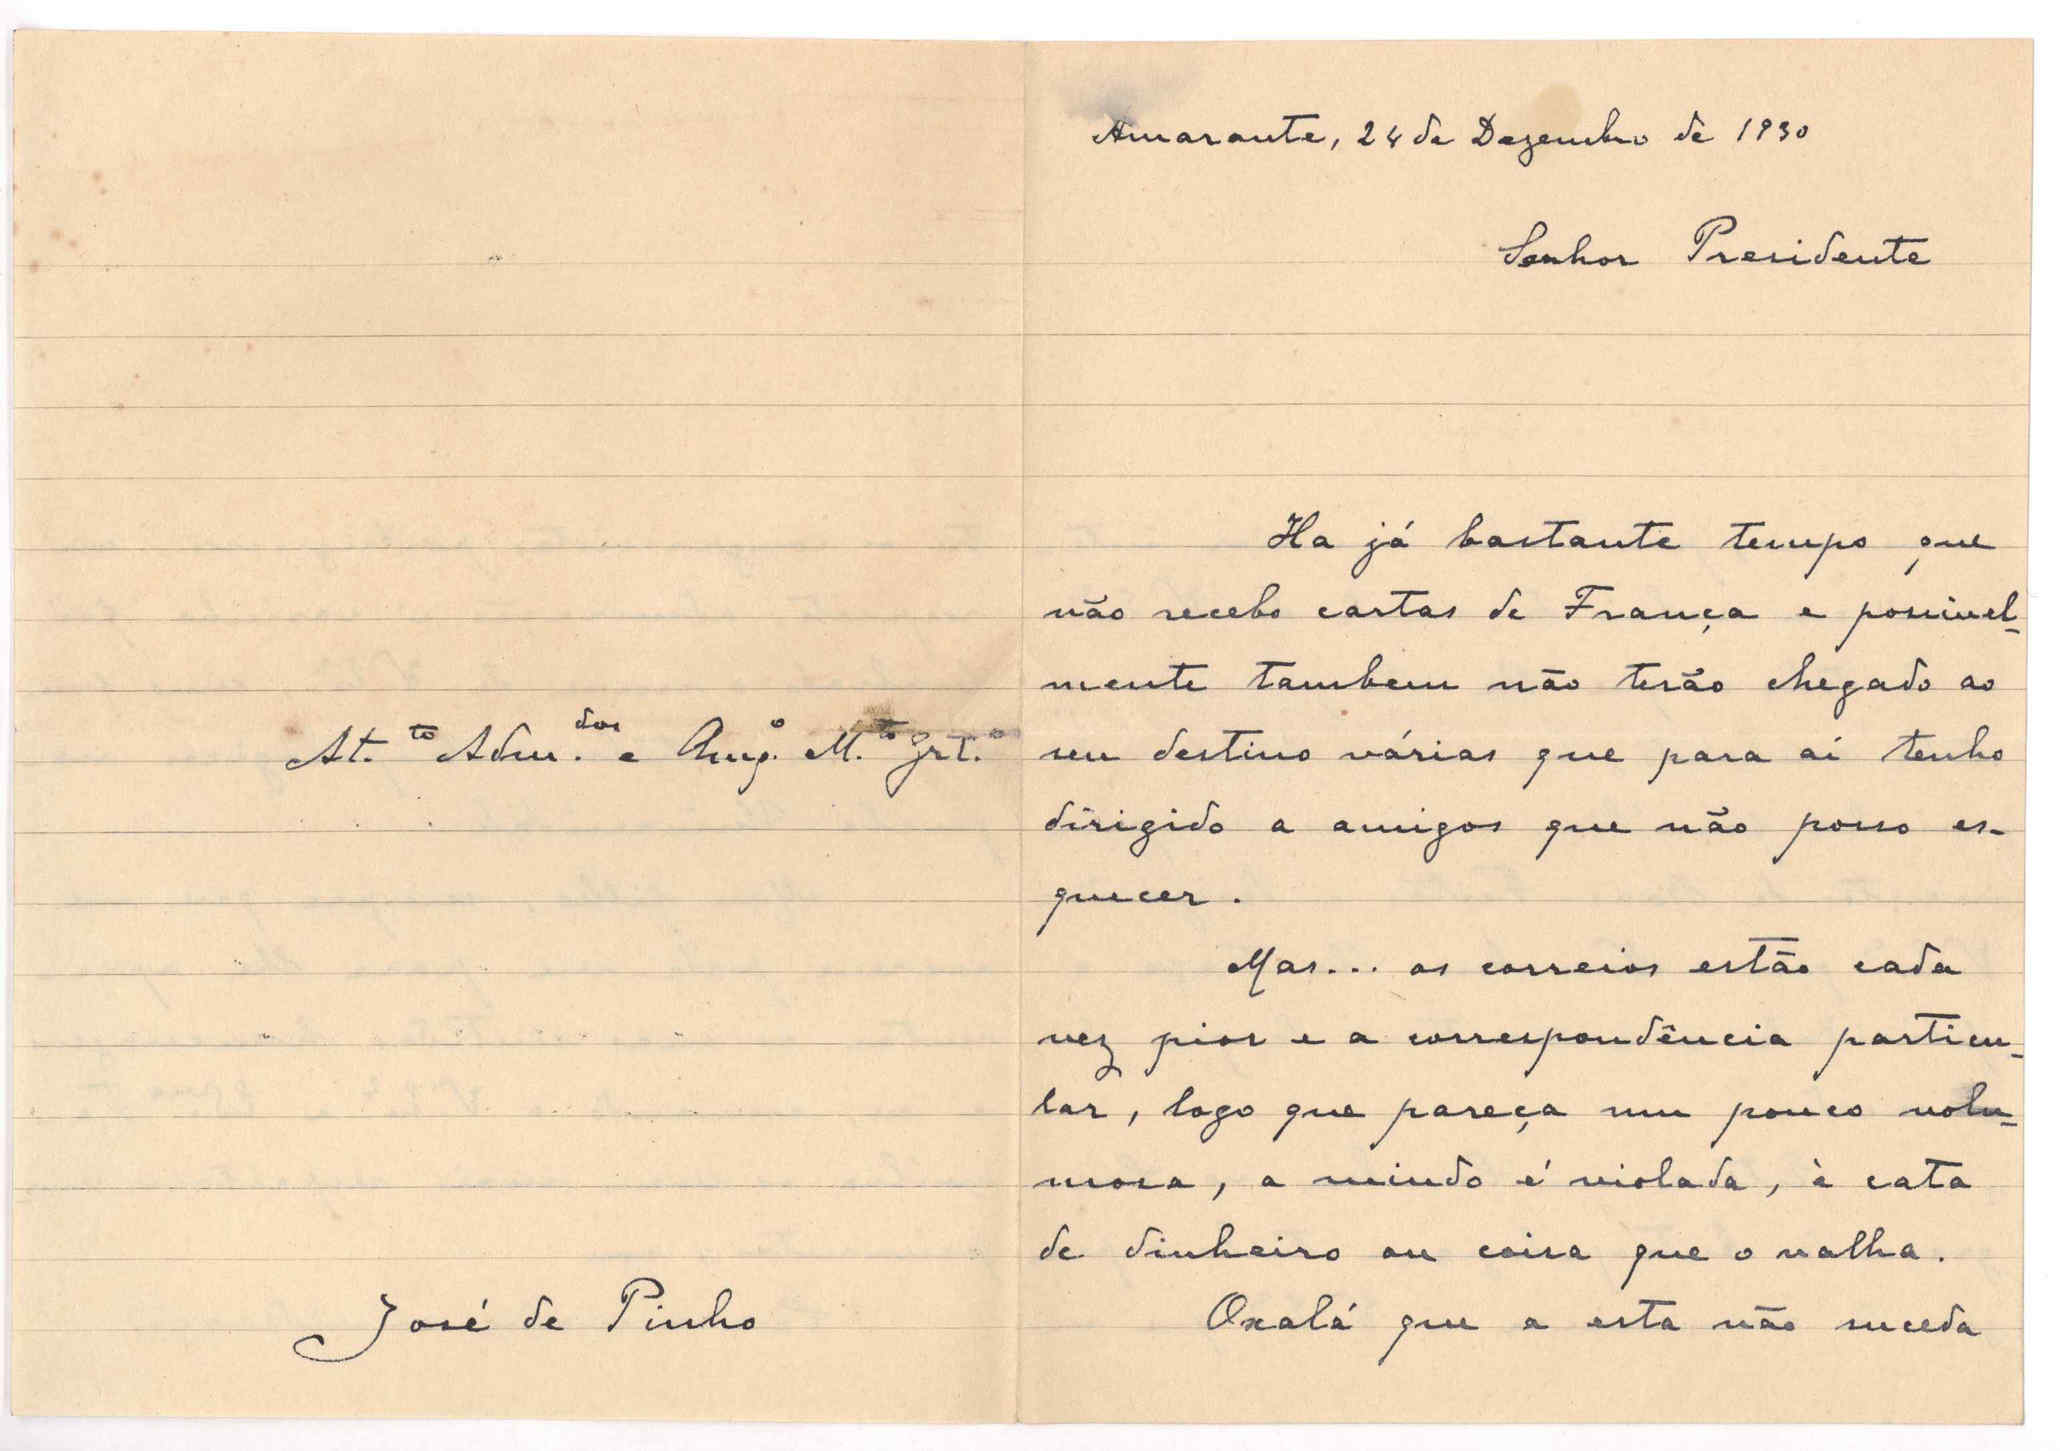 Amarante, 24 de Dezembro de 1930
Senhor Presidente
Ha já bastante tempo que
não recebo cartas de França e possivel-
mente tambem não terão chegado ao
seu destino várias que para aí tenho
dirigido a amigos que não posso es-
quecer.
Mas... os correios estão cada
vez pior e a correspondência particu-
lar, logo que pareça um pouco volu-
mosa, a miudo é violada, à cata
de dinheiro ou coisa que o valha.
Oxalá que a esta não suceda
At.to Adm.dor e Amg.o M.to Grt.o
José de Pinho